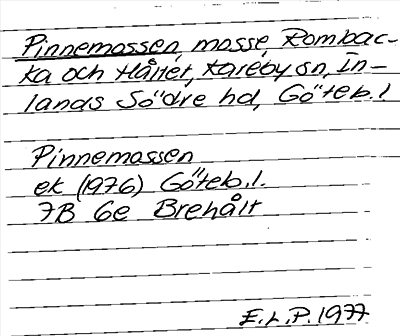 Pinnemossen, mosse, Rombac-
ka och Håltet, Kareby sn, In-
lands Södre hd, Göteb. l
Pinnemossen
ek (1976) Göteb. l.
7B 6e Brehålt
E. L. P. 1977